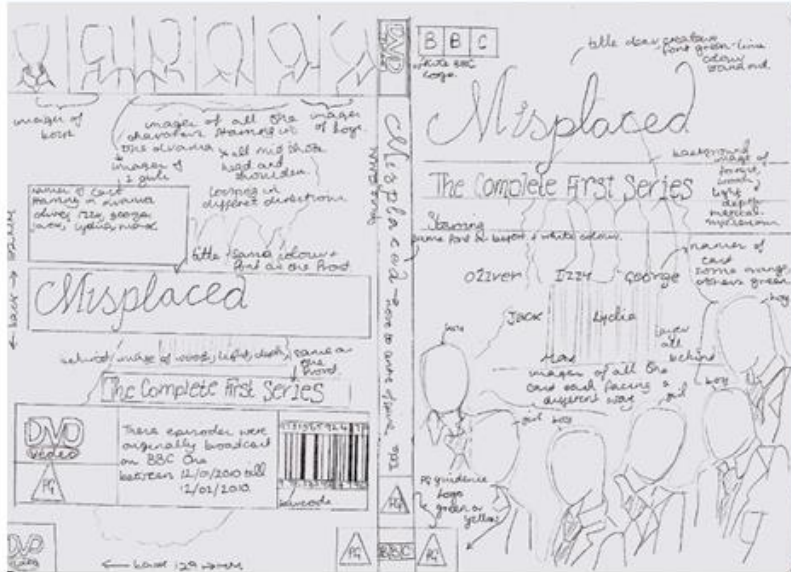 images of
boys
images of all the
characters starring in
the drama
images of
2 girls
images
of boys.
all mid shots
head and
shoulders
looking in
different directions
names of cast
starring in drama
oliver, izzy, george
jack, lydia, max.
title same colour +
font as the front
Misplaced
wood, light, depth, same as
the
front
The Complete First Series
DVD
video
PG
These episodes were
originally broadcast
on BBC One
between 12/01/2010 till
12/02/2010.
barcode
DVD
video
← back 129
PG
← back →
DVD
Misplaced
PG
BBC
BBC
BBC
logo.
title clear creative
font green-lime
colour
stand out.
Misplaced
background
image of
forest,
light
depth
The Complete First Series
Starring
same font as before + white colour.
names of
cast
some orange,
others green
Oliver Izzy George
Jack Lydia
Max
layer
all
behind
boy
boy
images of all the
cast each facing a
different way
boy
girl
girl boy
PG guidence
logo
green or
yellow
PG